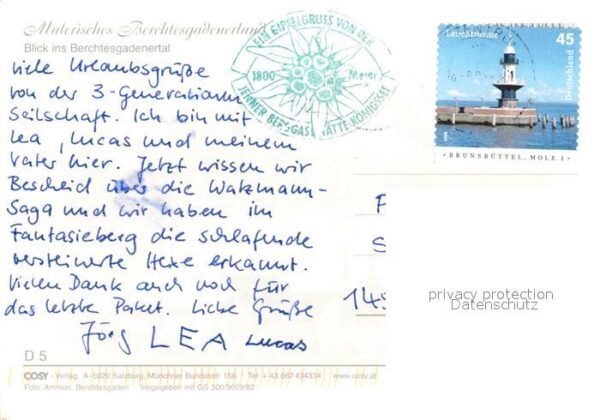 Malerisches Berchtesgadenerland
Blick ins Berchtesgadenertal
EIN GIPFELGRUSS VON DER
1800 Meter
JENNER BERGGASTSTÄTTE KÖNIGSSEE
Leuchttürme 45
Deutschland
BRUNSBÜTTEL, MOLE 1
viele Urlaubsgrüße
von der 3-Generationen
Seilschaft. Ich bin mit
Lea, Lucas und meinem
Vater hier. Jetzt wissen wir
Bescheid über die Watzmann-
Saga und wir haben im
Fantasieberg die schlafende
versteinerte Hexe erkannt.
Vielen Dank auch noch für
das letzte Paket. Liebe Grüße
Jörg LEA Lucas
F
S
145
privacy protection
Datenschutz
D 5
COSY - Verlag, A-5020 Salzburg, Münchner Bundesstr. 156 Tel. + 43 662 434334 www.cosy.at
Foto: Ammon, Berchtesgaden Freigegeben mit GS 300/9059/82